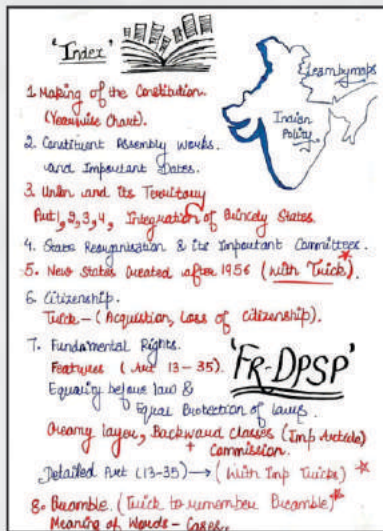 'Index'
1. Making of the Constitution.
(Yearwise Chart).
Learnbymaps
Indian
Polity
2. Constituent Assembly Works.
and Important Dates.
3. Union and its Territory
Art 1, 2, 3, 4, Integration of Princely States.
4. State Reorganisation & its Important Committees.
5. New States Created after 1956 (With Trick)*
6. Citizenship.
Trick - (Acquisition, Loss of Citizenship).
7. Fundamental Rights.
Features (Art 13-35).
'FR-DPSP'
Equality before law &
Equal Protection of laws.
Creamy layer, Backward Classes (Imp Article)
+ Commission.
Detailed Art (13-35) → (With Imp Tricks) *
8. Preamble. (Trick to remember Preamble)*
Meaning of Words - Cases.